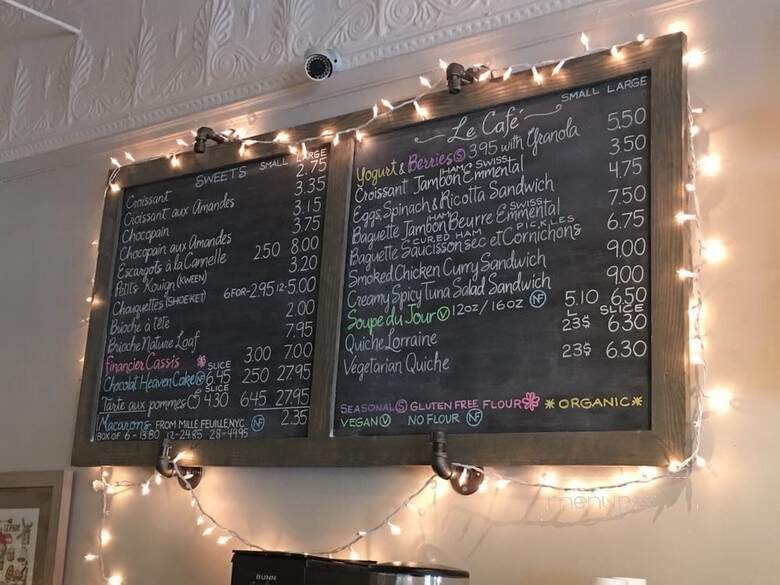 SWEETS SMALL LARGE
Croissant 2.75
Croissant aux Amandes 3.35
Chocopain 3.15
Chocopain aux Amandes 3.75
Escargots à la Cannelle 2.50 8.00
Petits Kouign (KWEEN) 3.20
Chouquettes (SHOE:KET) 6 FOR-2.95 12-5.00
Brioche à tête 2.00
Brioche Nature Loaf 7.95
Financier Cassis 3.00 7.00
Chocolat Heaven Cake NF SLICE 6.45 250 27.95
Tarte aux pommes SLICE 4.30 645 27.95
Macarons FROM MILLE FEUILLE NYC NF 2.35
BOX OF 6-13.80 12-24.85 28-49.95
Le Café SMALL LARGE
Yogurt & Berries S 3.95 with Granola 5.50
Croissant Jambon (HAM) Emmental SWISS 3.50
Eggs, Spinach & Ricotta Sandwich 4.75
Baguette Jambon (HAM) Beurre Emmental SWISS 7.50
Baguette Saucisson sec et Cornichons CURED HAM PICKLES 6.75
Smoked Chicken Curry Sandwich 9.00
Creamy Spicy Tuna Salad Sandwich 9.00
Soupe du Jour V 12oz/16oz NF 5.10 6.50
Quiche Lorraine L 23$ SLICE 6.30
Vegetarian Quiche 23$ 6.30
SEASONAL S GLUTEN FREE FLOUR * ORGANIC *
VEGAN V NO FLOUR NF
BUNN